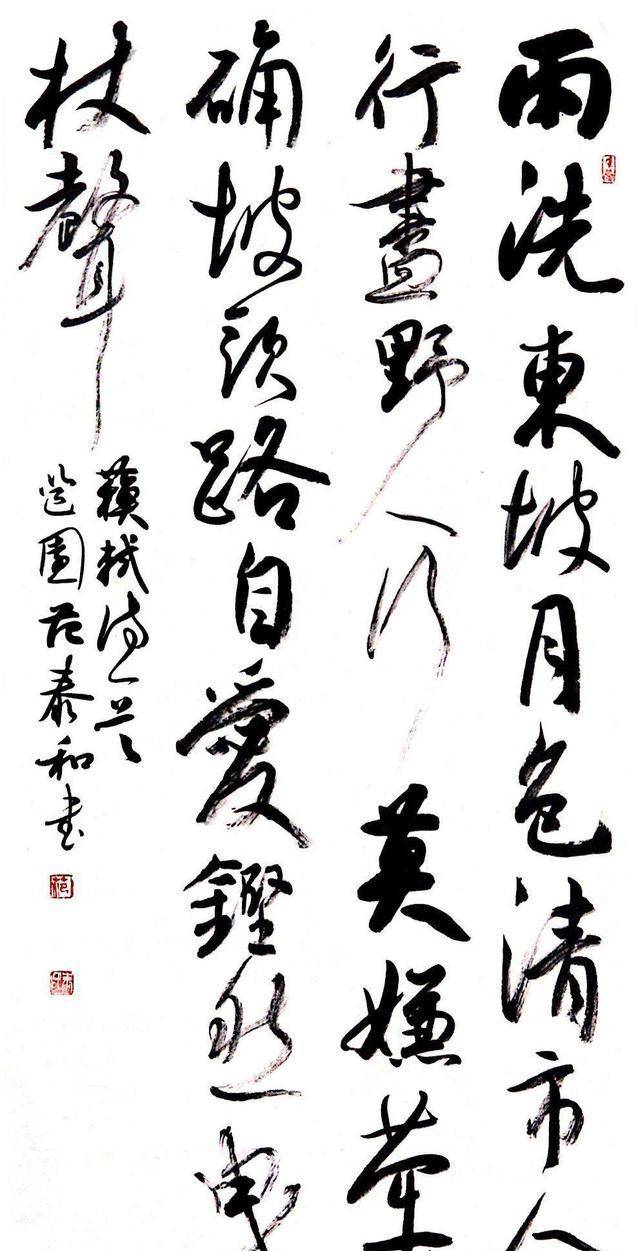 雨洗東坡月色清市人
行盡野人行莫嫌犖
确坡頭路自愛鏗然曳
杖聲
蘇軾詩一首
園范泰和書